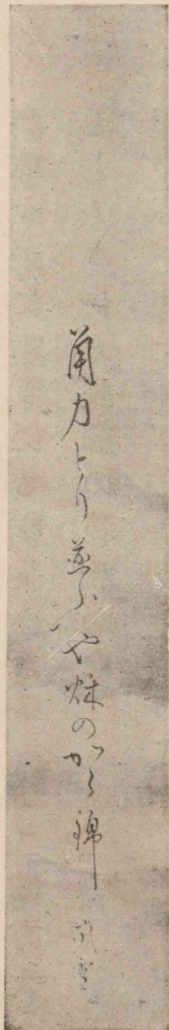 角力とり並ふや秌のから錦 嵐雪